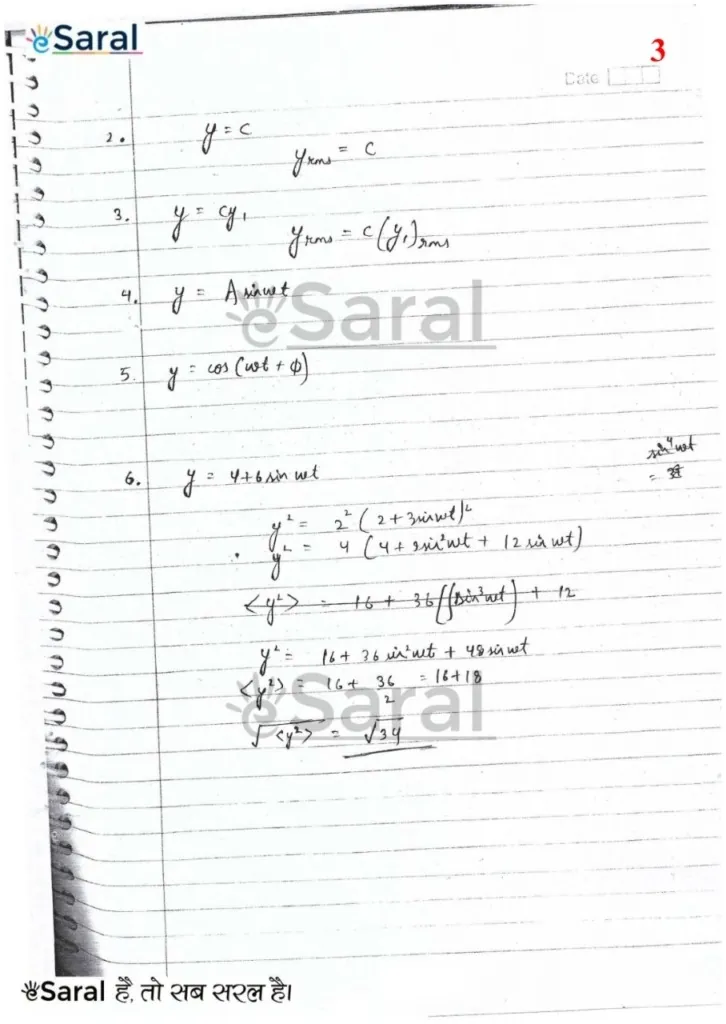 eSaral
3
Date
2. y = c
y_rms = c
3. y = cy₁
y_rms = c(y₁)_rms
4. y = A sin ωt
eSaral
5. y = cos(ωt + ϕ)
sin⁴ωt
6. y = 4+6 sin ωt
=
y² = 2² (2 + 3sinωt)²
y² = 4 (4 + 9sin²ωt + 12 sin ωt)
<y²> = 16 + 36 + 12
y² = 16 + 36 sin²ωt + 48 sin ωt
<y²> = 16 + 36/2 = 16+18
eSaral
√<y²> = √34
eSaral है, तो सब सरल है।